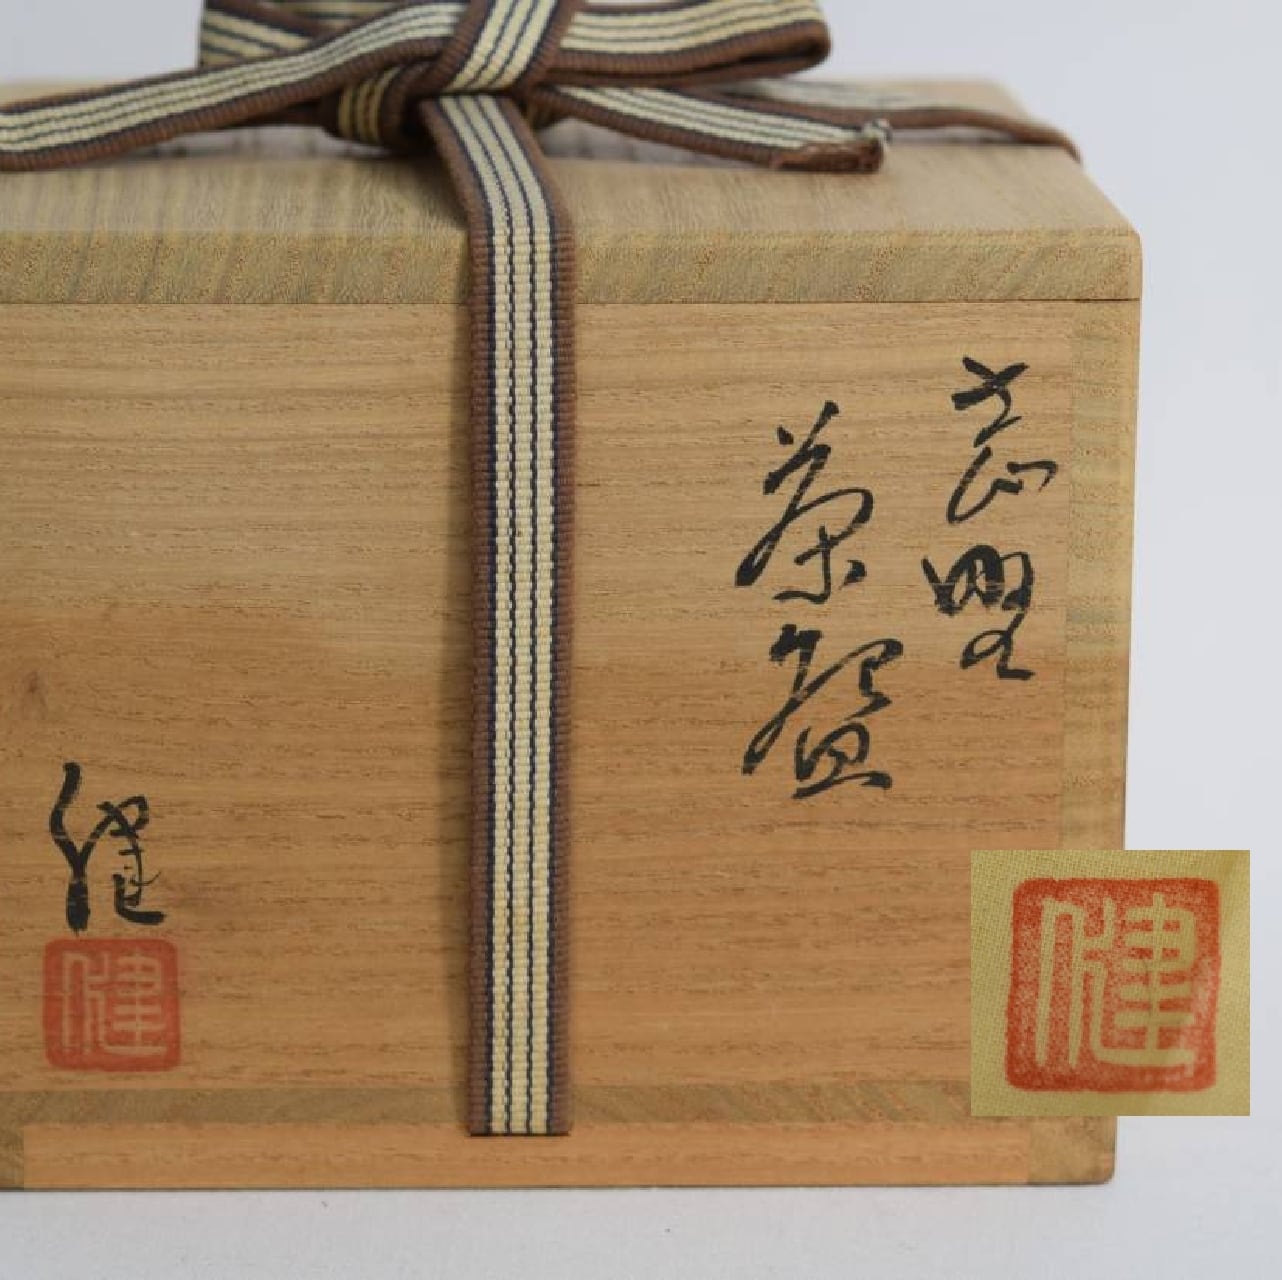 志野
茶盌
健
健
健